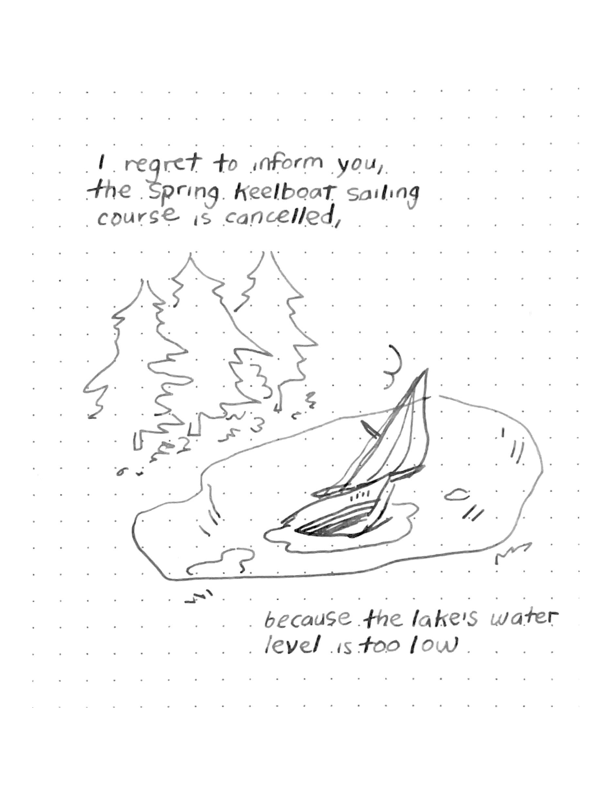 I regret to inform you,
the Spring Keelboat sailing
course is cancelled,
because the lake's water
level is too low